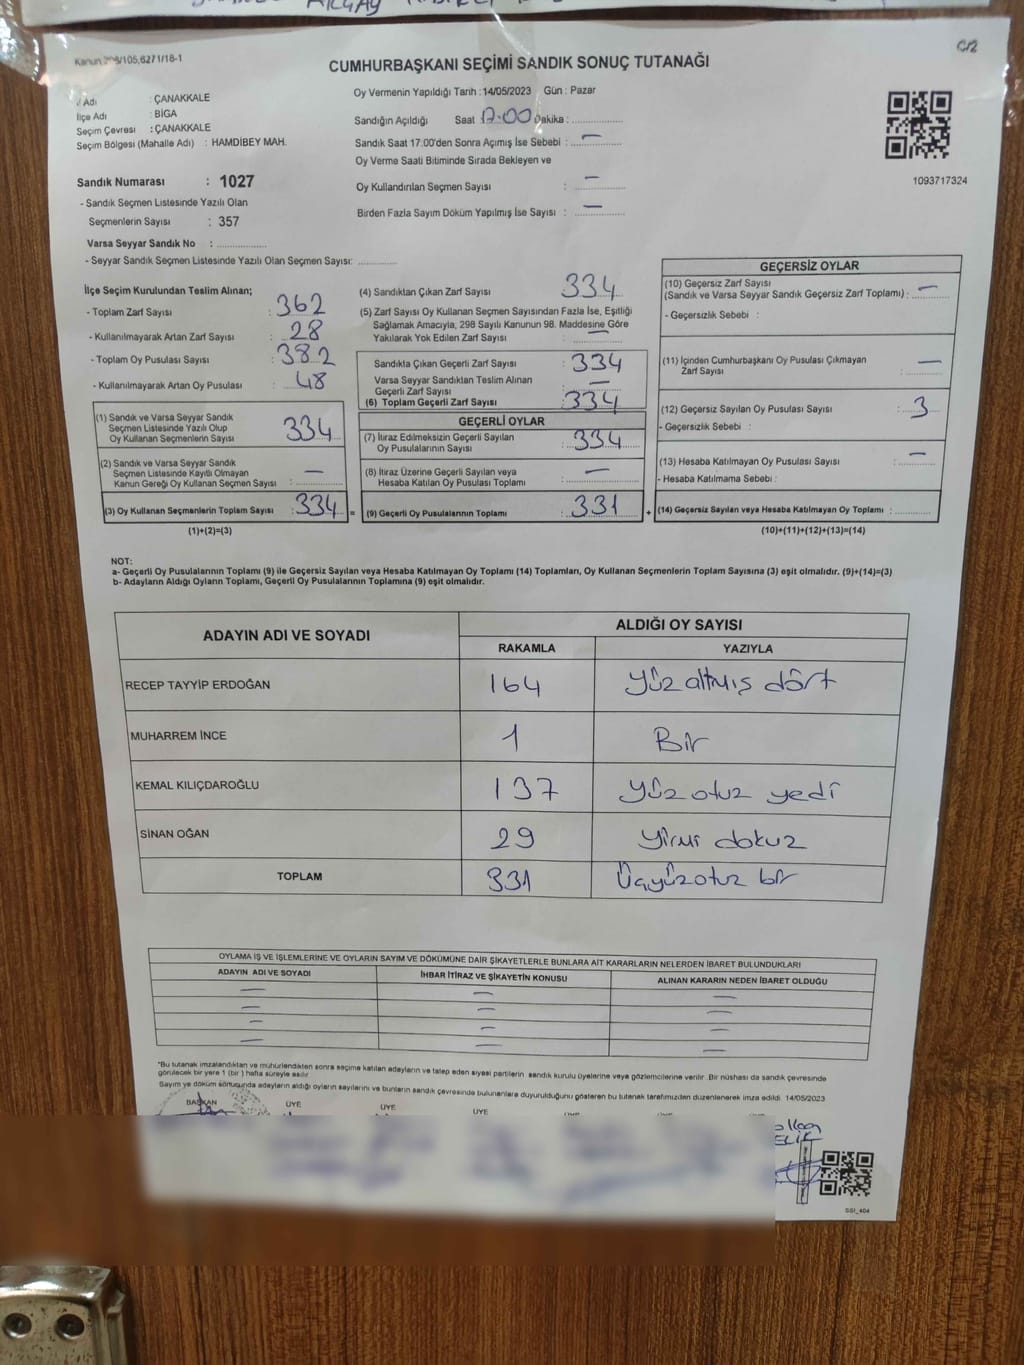 C/2
Kanun 298/105,6271/18-1
CUMHURBAŞKANI SEÇİMİ SANDIK SONUÇ TUTANAĞI
İl Adı : ÇANAKKALE
İlçe Adı : BİGA
Seçim Çevresi : ÇANAKKALE
Seçim Bölgesi (Mahalle Adı) : HAMDİBEY MAH.
Sandık Numarası : 1027
- Sandık Seçmen Listesinde Yazılı Olan
Seçmenlerin Sayısı : 357
Varsa Seyyar Sandık No : ..................
- Seyyar Sandık Seçmen Listesinde Yazılı Olan Seçmen Sayısı: ..............
Oy Vermenin Yapıldığı Tarih : 14/05/2023 Gün : Pazar
Sandığın Açıldığı Saat 17.00 Dakika : ..............
Sandık Saat 17:00'den Sonra Açımış İse Sebebi : —
Oy Verme Saati Bitiminde Sırada Bekleyen ve
Oy Kullandırılan Seçmen Sayısı : —
Birden Fazla Sayım Döküm Yapılmış İse Sayısı : —
1093717324
İlçe Seçim Kurulundan Teslim Alınan;
- Toplam Zarf Sayısı : 362
- Kullanılmayarak Artan Zarf Sayısı : 28
- Toplam Oy Pusulası Sayısı : 382
- Kullanılmayarak Artan Oy Pusulası : 48
(1) Sandık ve Varsa Seyyar Sandık
Seçmen Listesinde Yazılı Olup
Oy Kullanan Seçmenlerin Sayısı : 334
(2) Sandık ve Varsa Seyyar Sandık
Seçmen Listesinde Kayıtlı Olmayan
Kanun Gereği Oy Kullanan Seçmen Sayısı : —
(3) Oy Kullanan Seçmenlerin Toplam Sayısı : 334 =
(1)+(2)=(3)
(4) Sandıktan Çıkan Zarf Sayısı : 334
(5) Zarf Sayısı Oy Kullanan Seçmen Sayısından Fazla İse, Eşitliği
Sağlamak Amacıyla, 298 Sayılı Kanunun 98. Maddesine Göre
Yakılarak Yok Edilen Zarf Sayısı : —
Sandıkta Çıkan Geçerli Zarf Sayısı : 334
Varsa Seyyar Sandıktan Teslim Alınan
Geçerli Zarf Sayısı : —
(6) Toplam Geçerli Zarf Sayısı : 334
GEÇERLİ OYLAR
(7) İtiraz Edilmeksizin Geçerli Sayılan
Oy Pusulalarının Sayısı : 334
(8) İtiraz Üzerine Geçerli Sayılan veya
Hesaba Katılan Oy Pusulası Toplamı : —
(9) Geçerli Oy Pusulalarının Toplamı : 331 +
GEÇERSİZ OYLAR
(10) Geçersiz Zarf Sayısı
(Sandık ve Varsa Seyyar Sandık Geçersiz Zarf Toplamı) : —
- Geçersizlik Sebebi :
(11) İçinden Cumhurbaşkanı Oy Pusulası Çıkmayan
Zarf Sayısı : —
(12) Geçersiz Sayılan Oy Pusulası Sayısı : 3
- Geçersizlik Sebebi :
(13) Hesaba Katılmayan Oy Pusulası Sayısı : —
- Hesaba Katılmama Sebebi :
(14) Geçersiz Sayılan veya Hesaba Katılmayan Oy Toplamı : ...........
(10)+(11)+(12)+(13)=(14)
NOT:
a- Geçerli Oy Pusulalarının Toplamı (9) ile Geçersiz Sayılan veya Hesaba Katılmayan Oy Toplamı (14) Toplamları, Oy Kullanan Seçmenlerin Toplam Sayısına (3) eşit olmalıdır. (9)+(14)=(3)
b- Adayların Aldığı Oyların Toplamı, Geçerli Oy Pusulalarının Toplamına (9) eşit olmalıdır.
ADAYIN ADI VE SOYADI
ALDIĞI OY SAYISI
RAKAMLA YAZIYLA
RECEP TAYYİP ERDOĞAN 164 yüz altmış dört
MUHARREM İNCE 1 Bir
KEMAL KILIÇDAROĞLU 137 yüz otuz yedi
SİNAN OĞAN 29 yirmi dokuz
TOPLAM 331 Üçyüzotuz bir
OYLAMA İŞ VE İŞLEMLERİNE VE OYLARIN SAYIM VE DÖKÜMÜNE DAİR ŞİKAYETLERLE BUNLARA AİT KARARLARIN NELERDEN İBARET BULUNDUKLARI
ADAYIN ADI VE SOYADI İHBAR İTİRAZ VE ŞİKAYETİN KONUSU ALINAN KARARIN NEDEN İBARET OLDUĞU
— — —
— — —
— — —
— — —
*Bu tutanak imzalandıktan ve mühürlendikten sonra seçime katılan adayların ve talep eden siyasi partilerin sandık kurulu üyelerine veya gözlemcilerine verilir. Bir nüshası da sandık çevresinde
görülecek bir yere 1 (bir) hafta süreyle asılır.
Sayım ve döküm sonucunda adayların aldığı oyların sayılarını ve bunların sandık çevresinde bulunanlara duyurulduğunu gösteren bu tutanak tarafımızdan düzenlenerek imza edildi. 14/05/2023
BAŞKAN ÜYE ÜYE ÜYE
SSI_404